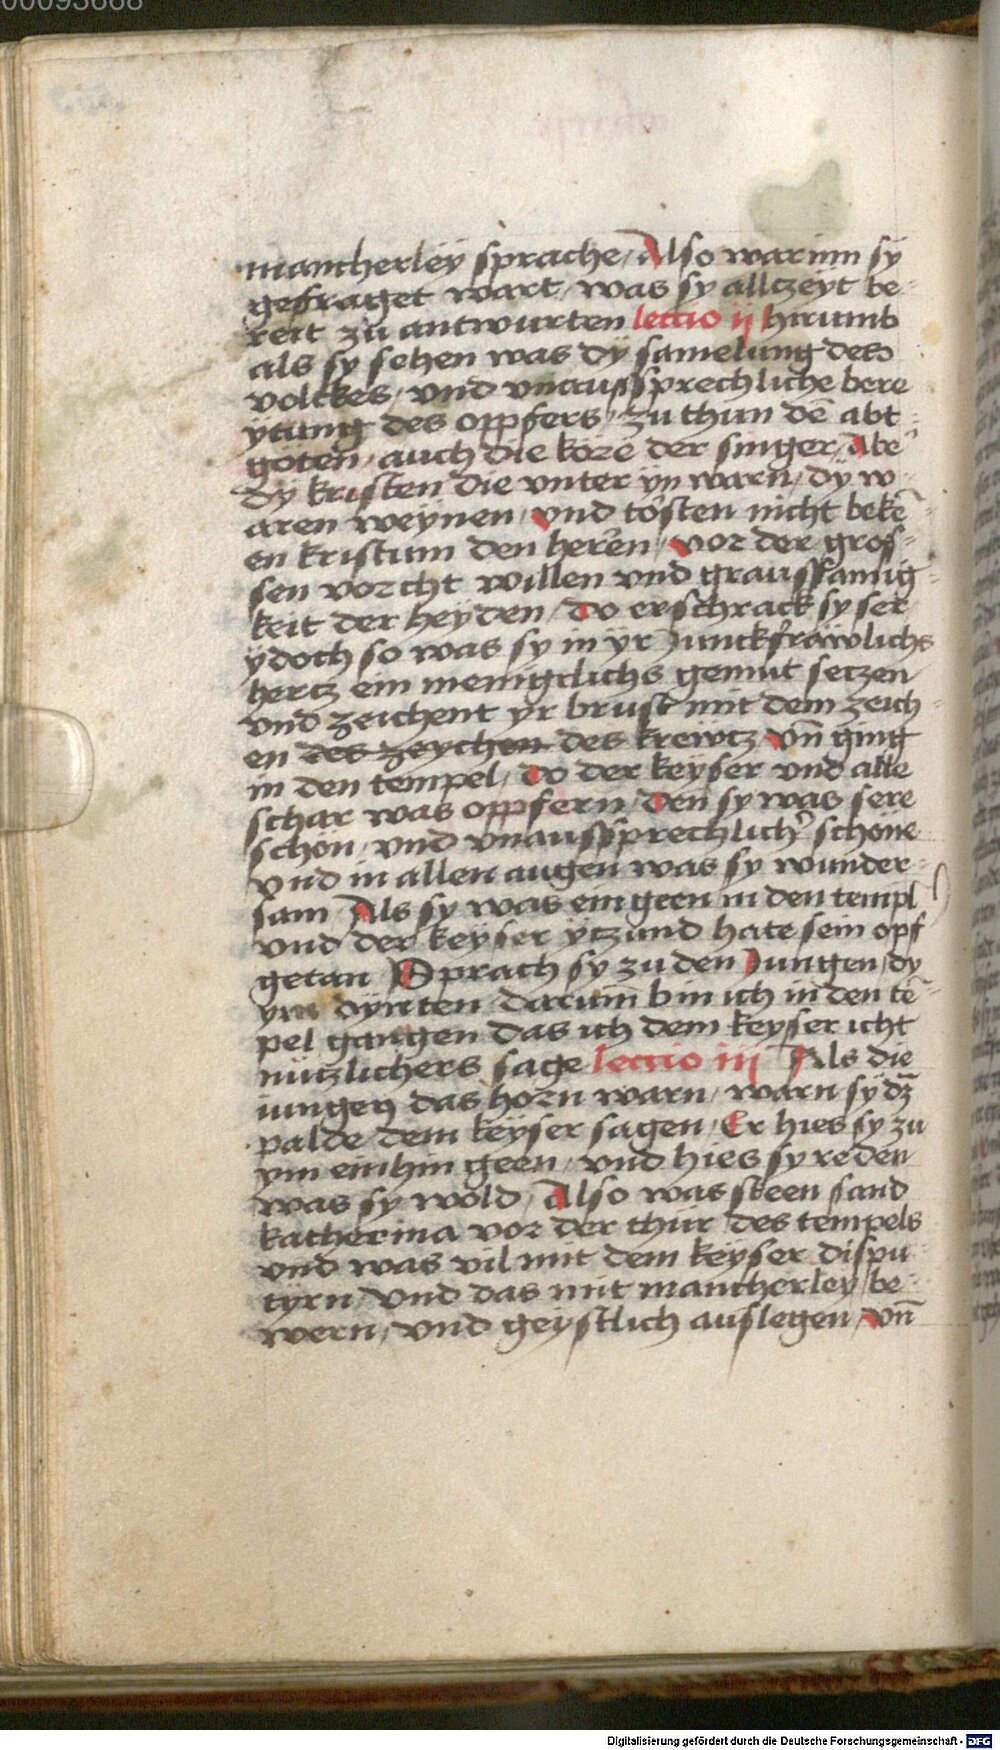 00093668
mancherleÿ sprache / Also warümb sÿ
gefraget wart / was sy alltzeyt be-
reit zu antwurten lectio ij hirumb
als sy sehen was dÿ samelung des
volckes / vnd vnaussprechliche bere
ytung des oppfers / zu thun dē abt-
göten / auch die köre der singer / Abē
dÿ kristen die vnter yn warn / dÿ w
aren weynen / vnd törsten nicht bekē-
en kristum den heren / vor der gros-
sen vorcht willen vnd graussamig-
keit der heyden / do erschrack sy ser
ydoch so was sy in yr Junckfrawlichs
hertz ein menigclichs gemut setzen
vnd zeichent yr brust mit dem zeich
en des zeychen des krewtz vn̄ ging
in den tempel / do der keyser vnd alle
schar was oppfern / den sy was sere
schön / vnd vnaussprechlichᵉ schöne
vnd in allen augen was sy wunder-
sam Als sy was ein geen in den templ
vnd der keyser ytzund hate sein opf
getan Sprach sy zu den Jungen / dy
ym dynten darum bin ich in den tē-
pel gangen das ich dem keyser icht
nützlichers sage lectio iij Als die
iungen das horn warn / warn sy dz
palde dem keyser sagen / Er hies sy zu
ym einhin geen / vnd hies sy reden
was sy wold / Also was steen sand
katherina vor der thür des tempels
vnd was vil mit dem keyser dispu
tyrn / vnd das mit mancherley be-
wern / vnd geystlich auslegen / vn̄
Digitalisierung gefördert durch die Deutsche Forschungsgemeinschaft - DFG